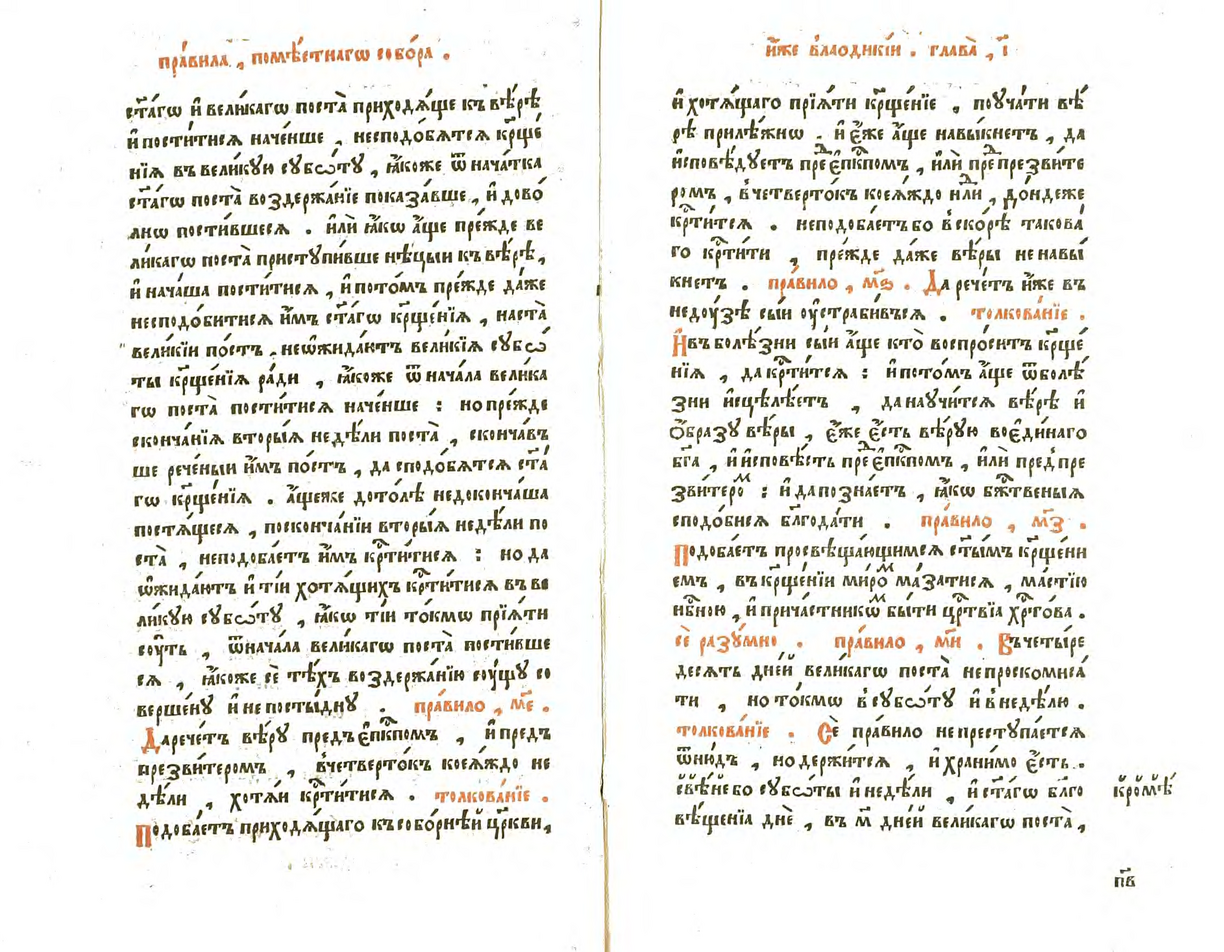 пра́вила , помѣ́стнагѡ собо́ра .
ст҃а́гѡ и҆ вели́кагѡ поста̀ приходѧ́ще къ вѣ́рѣ
и҆ пости́тисѧ наче́нше , несподо́бѧтсѧ кр҃ще́
нїѧ въ вели́кую сꙋбѡ́тꙋ , ꙗ҆́коже ѿ нача́тка
ст҃а́гѡ поста̀ воздержа́нїе показа́вше , и҆ дово́
лнѡ пости́вшесѧ . и҆лѝ ꙗ҆́кѡ а҆́ще пре́жде ве
ли́кагѡ поста̀ пристꙋпи́вше нѣ́цыи къ вѣ́рѣ ,
и҆ нача́ша пости́тисѧ , и҆ пото́мъ пре́жде да́же
несподо́битисѧ и҆̀мъ ст҃а́гѡ кр҃ще́нїѧ , наста̀
вели́кїи по́стъ , неѡ҆жида́ютъ вели́кїѧ сꙋбѡ́
ты кр҃ще́нїѧ ра́ди , ꙗ҆́коже ѿ нача́ла велика
гѡ поста̀ пости́тисѧ наче́нше : но пре́жде
сконча́нїѧ вторы́ѧ недѣ́ли поста̀ , сконча́въ
ше рече́ныи и҆̀мъ по́стъ , да сподо́бѧтсѧ ст҃а́
гѡ кр҃ще́нїѧ . а҆́щеже дото́лѣ недоконча́ша
постѧ́щесѧ , посконча́нїи вторы́ѧ недѣ́ли по
ста̀ , неподоба́етъ и҆̀мъ кр҃ти́тисѧ : но да
ѡ҆жида́ютъ и҆ ті́и хотѧ́щихъ кр҃ти́тисѧ въ ве
ли́кую сꙋбѡ́тꙋ , ꙗ҆́кѡ ті́и то́кмѡ прїѧ́ти
сꙋ́ть , ѿ нача́ла вели́кагѡ поста̀ пости́вше
сѧ , ꙗ҆́коже сѐ тѣ́хъ воздержа́нїю сꙋ́щꙋ со
верше́нꙋ и҆ непосты́днꙋ . пра́вило , м҃е .
Да рече́тъ вѣ́рꙋ предъ є҆пк҃помъ , и҆ предъ
презви́теромъ , в҆четверто́къ коеѧ́ждо не
дѣ́ли , хотѧ́и кр҃ти́тисѧ . толкова́нїе .
Подоба́етъ приходѧ́щаго къ собо́рнѣй цр҃кви ,
и҆́же в҆лаодикі́и . глава̀ , р҃і
и҆ хотѧ́щаго прїѧ́ти кр҃ще́нїе , поꙋча́ти вѣ́
рѣ прилѣ́жнѡ . и҆ є҆́же а҆́ще навы́кнетъ , да
и҆сповѣ́дꙋетъ преⷣ є҆пк҃помъ , и҆лѝ преⷣ презви́те
ромъ , в҆четверто́къ коеѧ́ждо нлⷣи , до́ндеже
кр҃ти́тсѧ . неподоба́етъ бо в҆ско́рѣ такова́
го кр҃ти́ти , пре́жде да́же вѣ́ры ненавы́
кнетъ . пра́вило , м҃ѕ . Да рече́тъ и҆́же въ
недꙋ́зѣ сы́и ᲂу҆страби́всѧ . толкова́нїе .
И҆ въ болѣ́зни сы́и а҆́ще кто̀ воспро́ситъ кр҃ще́
нїѧ , да кр҃ти́тсѧ : и҆ пото́мъ а҆́ще ѿ болѣ́
зни и҆сцѣлѣ́етъ , да наꙋчи́тсѧ вѣ́рѣ и҆
ѻ҆́бразꙋ вѣ́ры , є҆́же є҆́сть вѣ́рꙋю воє҆ди́наго
бг҃а , и҆ и҆сповѣ́сть преⷣ є҆пк҃помъ , и҆лѝ предпре
зви́тероⷨ : и҆ да позна́етъ , ꙗ҆́кѡ бж҃твеныѧ
сподо́бисѧ блг҃ода́ти . пра́вило , м҃з .
Подоба́етъ просвѣща́ющимсѧ ст҃ы́мъ кр҃ще́ни
емъ , въ кр҃ще́нїи ми́роⷨ ма́затисѧ , ма́стїю
нб҃ною , и҆ прича́стникѡⷨ бы́ти цр҃твїа хр҃то́ва .
сѐ разꙋ́мно . пра́вило , м҃и . Въ четы́ре
десѧтъ дне́й вели́кагѡ поста̀ непроскомиса́
ти , но то́кмѡ в҆сꙋбѡ́тꙋ и҆ в҆недѣ́лю .
толкова́нїе . Сѐ пра́вило непрестꙋпа́етсѧ
ѿню́дъ , но держи́тсѧ , и҆ храни́мо є҆́сть .
свѣ́не бо сꙋбѡ́ты и҆ недѣ́ли , и҆ ст҃а́гѡ бл҃го
вѣ́щенїа днѐ , въ м҃ дне́й вели́кагѡ поста̀ ,
кромѣ́
п҃в